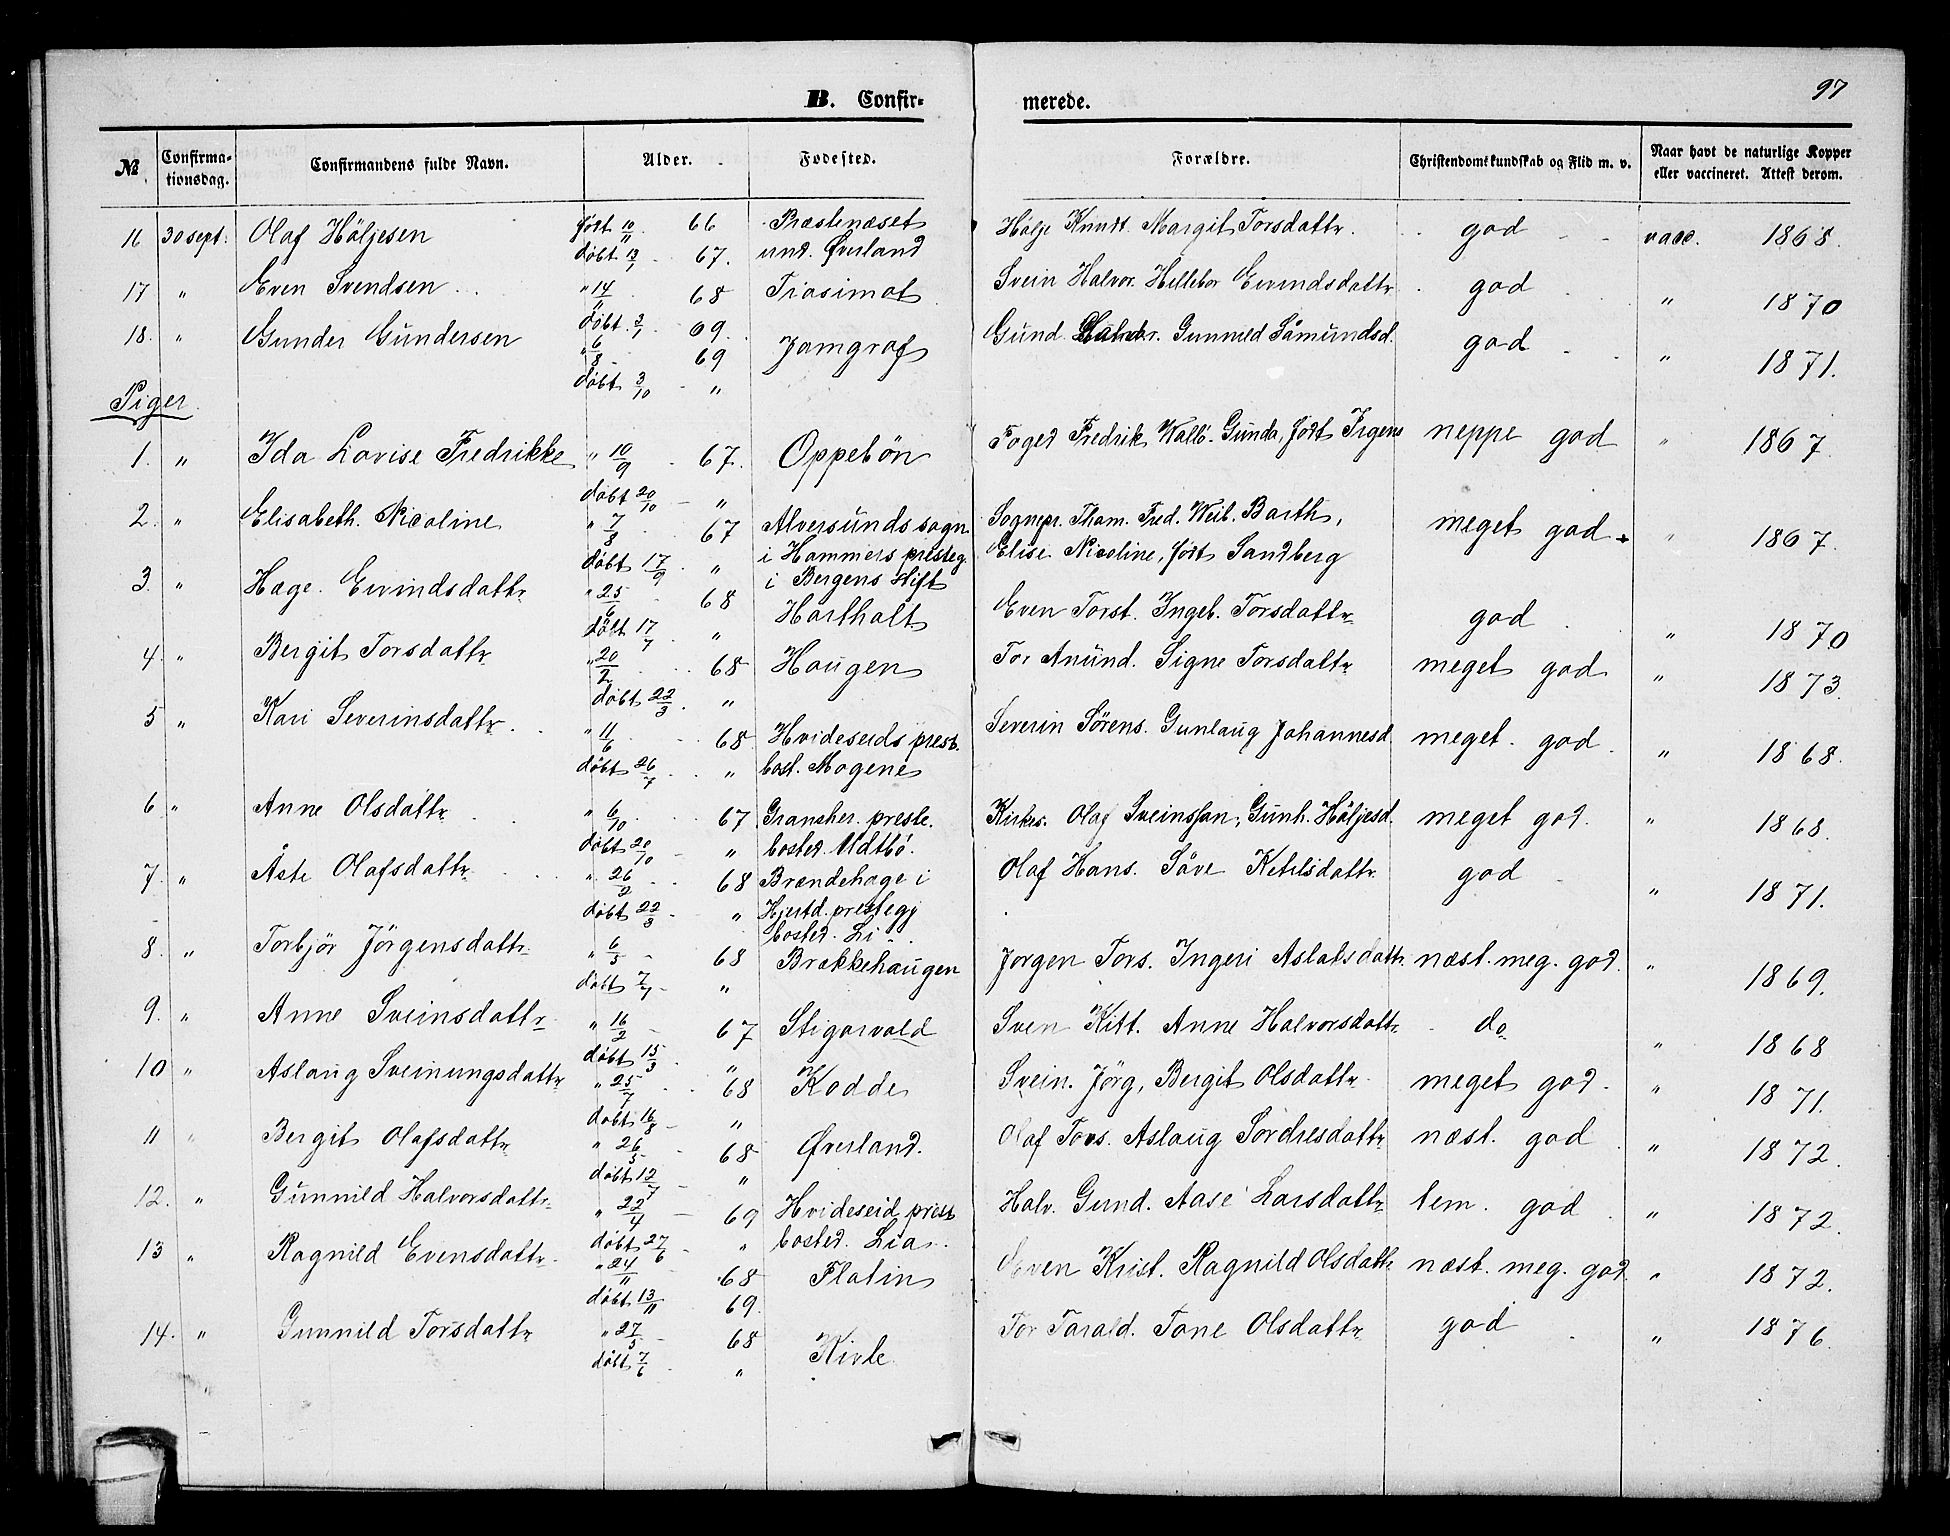 97
B. Confirmerede.
№ Confirmationsdag. Confirmandens fulde Navn. Alder. Fødested. Forældre. Christendomskundskab og Flid m. v. Naar havt de naturlige Kopper eller vaccineret. Attest derom.
16 30 sept: Olaf Höljesen født 10/11 66 Præstenæset Hölje Knudt. Margit Torsdattr. god vacc. 1868.
døbt 13/1 67. und. Øverland
17 " Even Svendsen " 14/11 68 Tiosimot Svein Halvor. Hellebor Eivindsdattr god " 1870
døbt 3/1 69.
18. " Gunder Gundersen " 6/8 69 Jamgraf Gund Halvor. Gunnild Såmundsd. god " 1871.
døbt 3/10 "
Piger
1. " Ida Lovise Fredrikke " 10/9 67. Oppebön Foged Fredrik Wallö. Gunda, født Irgens neppe god " 1867.
døbt 20/10 "
2. " Elisabeth. Nicoline " 7/8 67 Alversunds sogn Sognepr. Tham. Fred. Weib. Barth, meget god. " 1867.
døbt 17/9 " i Hammers presteg. Elise Nicoline, født Sandberg
i Bergens stift
3. " Hæge. Eivindsdattr " 25/6 68 Hartholt Even Torst. Ingeb. Torsdattr god " 1870
døbt 17/7 "
4. " Bergit Torsdattr " 20/2 68 Haugen Tor Anund. Signe Torsdattr meget god " 1873.
døbt 22/3 "
5 " Kari Severinsdattr " 11/6 68 Hvideseids prest. Severin Sörens. Gunlaug Johannesd. meget god. " 1868.
døbt 26/7 " bost. Mogene
6 " Anne Olsdattr " 6/10 67 Gransher. preste. Kirkes. Olaf Sveinssøn, Gunh. Höljesd. meget god. " 1868.
døbt 20/10 " bosted. Udtbö.
7. " Åste Olafsdattr " 26/2 68 Brændehage i Olaf Hans. Såve Ketilsdattr god " 1871.
døbt 22/3 " Hjertd. prestegj
bosted. Li
8. " Torbjör Jörgensdattr " 6/5 68 Brækkehaugen Jorgen Tors. Ingeri Aslaksdattr. næst. meg. god. " 1869.
døbt 7/7 "
9. " Anne Sveinsdattr " 16/2 67 Stigarvald Sven Kitt. Anne Halvorsdattr do " 1868
døbt 15/3 "
10 " Aslaug Sveinungsdattr " 25/7 68 Kodde Svein. Jörg, Bergit Olsdattr meget god. " 1871.
døbt 16/8 "
11 " Bergit Olafsdattr " 26/5 68 Øverland. Olaf Tors. Aslaug Sördresdattr næst. god " 1872.
døbt 12/7 "
12. " Gunnild Halvorsdattr " 22/4 69 Hvideseid prest Halv. Gund. Aase Larsdattr tem. god " 1872.
døbt 27/6 " bosted. Lia.
13 " Ragnild Evensdattr " 24/11 68 Flatin Even Krist. Ragnild Olsdattr næst. meg. god. " 1872.
døbt 13/11 69.
14. " Gunnild Torsdattr " 27/5 68 Kivle Tor Tarald. Tone Olsdattr god " 1876.
døbt 7/6 "